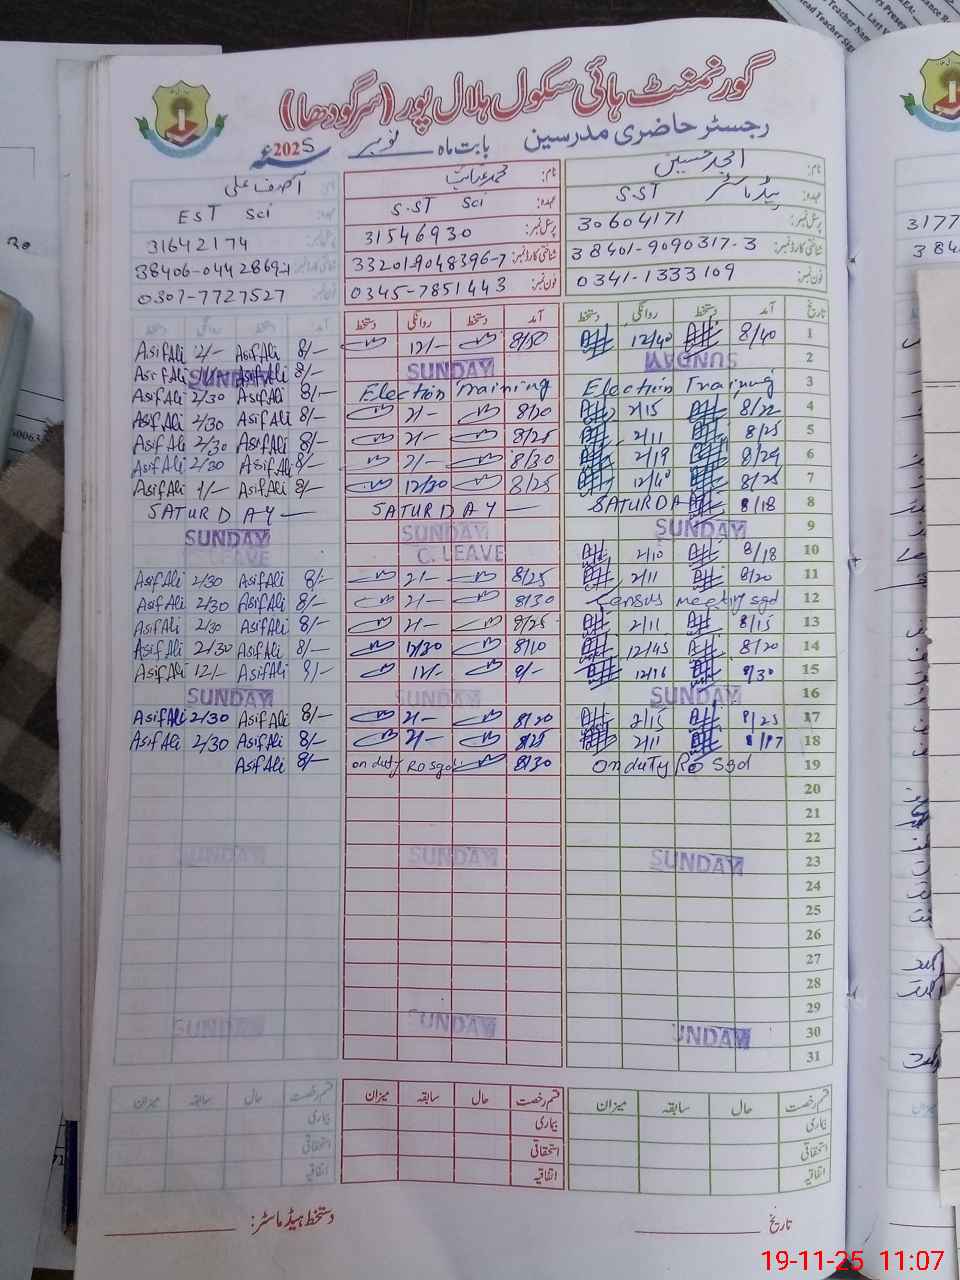 گورنمنٹ ہائی سکول ہلال پور (سرگودھا)
رجسٹر حاضری مدرسین بابت ماہ نومبر 2025ء
نام: امجد حسین
عہدہ: S.ST ہیڈ ماسٹر
پرسنل نمبر: 30604171
شناختی کارڈ نمبر: 38401-9090317-3
فون نمبر: 0341-1333109
نام: محمد
عہدہ: S.ST Sci
پرسنل نمبر: 31546930
شناختی کارڈ نمبر: 33201-9048396-7
فون نمبر: 0345-7851443
آصف علی
عہدہ: EST Sci
31642174
شناختی کارڈ نمبر: 38406-0442869-
0307-7727527
تاریخ آمد دستخط روانگی دستخط آمد دستخط روانگی دستخط آمد دستخط روانگی دستخط
1 8/40 12/40 8/50 12/- 8/- Asif Ali 2/- Asif Ali
2 SUNDAY SUNDAY SUNDAY 8/- Asif Ali Asif Ali
3 Election Training Election Training 8/- Asif Ali 2/30 Asif Ali
4 8/22 2/15 8/20 2/- 8/- Asif Ali 2/30 Asif Ali
5 8/25 2/11 8/25 2/- 8/- Asif Ali 2/30 Asif Ali
6 8/29 2/19 8/30 2/- 8/- Asif Ali 2/30 Asif Ali
7 8/25 12/40 8/25 12/30 8/- Asif Ali 1/- Asif Ali
8 8/18 SATURDAY SATURDAY — SATURDAY —
9 SUNDAY SUNDAY SUNDAY
10 8/18 2/10 C. LEAVE LEAVE
11 8/20 2/11 8/25 2/- 8/- Asif Ali 2/30 Asif Ali
12 Census meeting sgd 8/30 2/- 8/- Asif Ali 2/30 Asif Ali
13 8/15 2/11 8/25 2/- 8/- Asif Ali 2/30 Asif Ali
14 8/20 12/45 8/10 12/30 8/- Asif Ali 2/30 Asif Ali
15 8/30 12/16 8/- 12/- 8/- Asif Ali 12/- Asif Ali
16 SUNDAY SUNDAY SUNDAY
17 8/25 2/15 8/20 2/- 8/- Asif Ali 2/30 Asif Ali
18 8/17 2/11 8/25 2/- 8/- Asif Ali 2/30 Asif Ali
19 On duty Ro Sgd 8/30 on duty Ro sgd 8/- Asif Ali
20
21
22
23 SUNDAY SUNDAY SUNDAY
24
25
26
27
28
29
30 UNDAY SUNDAY SUNDAY
31
قسم رخصت حال سابقہ میزان قسم رخصت حال سابقہ میزان قسم رخصت حال سابقہ میزان
بیماری بیماری بیماری
استحقاقی استحقاقی استحقاقی
اتفاقیہ اتفاقیہ اتفاقیہ
تاریخ دستخط ہیڈ ماسٹر:
19-11-25 11:07